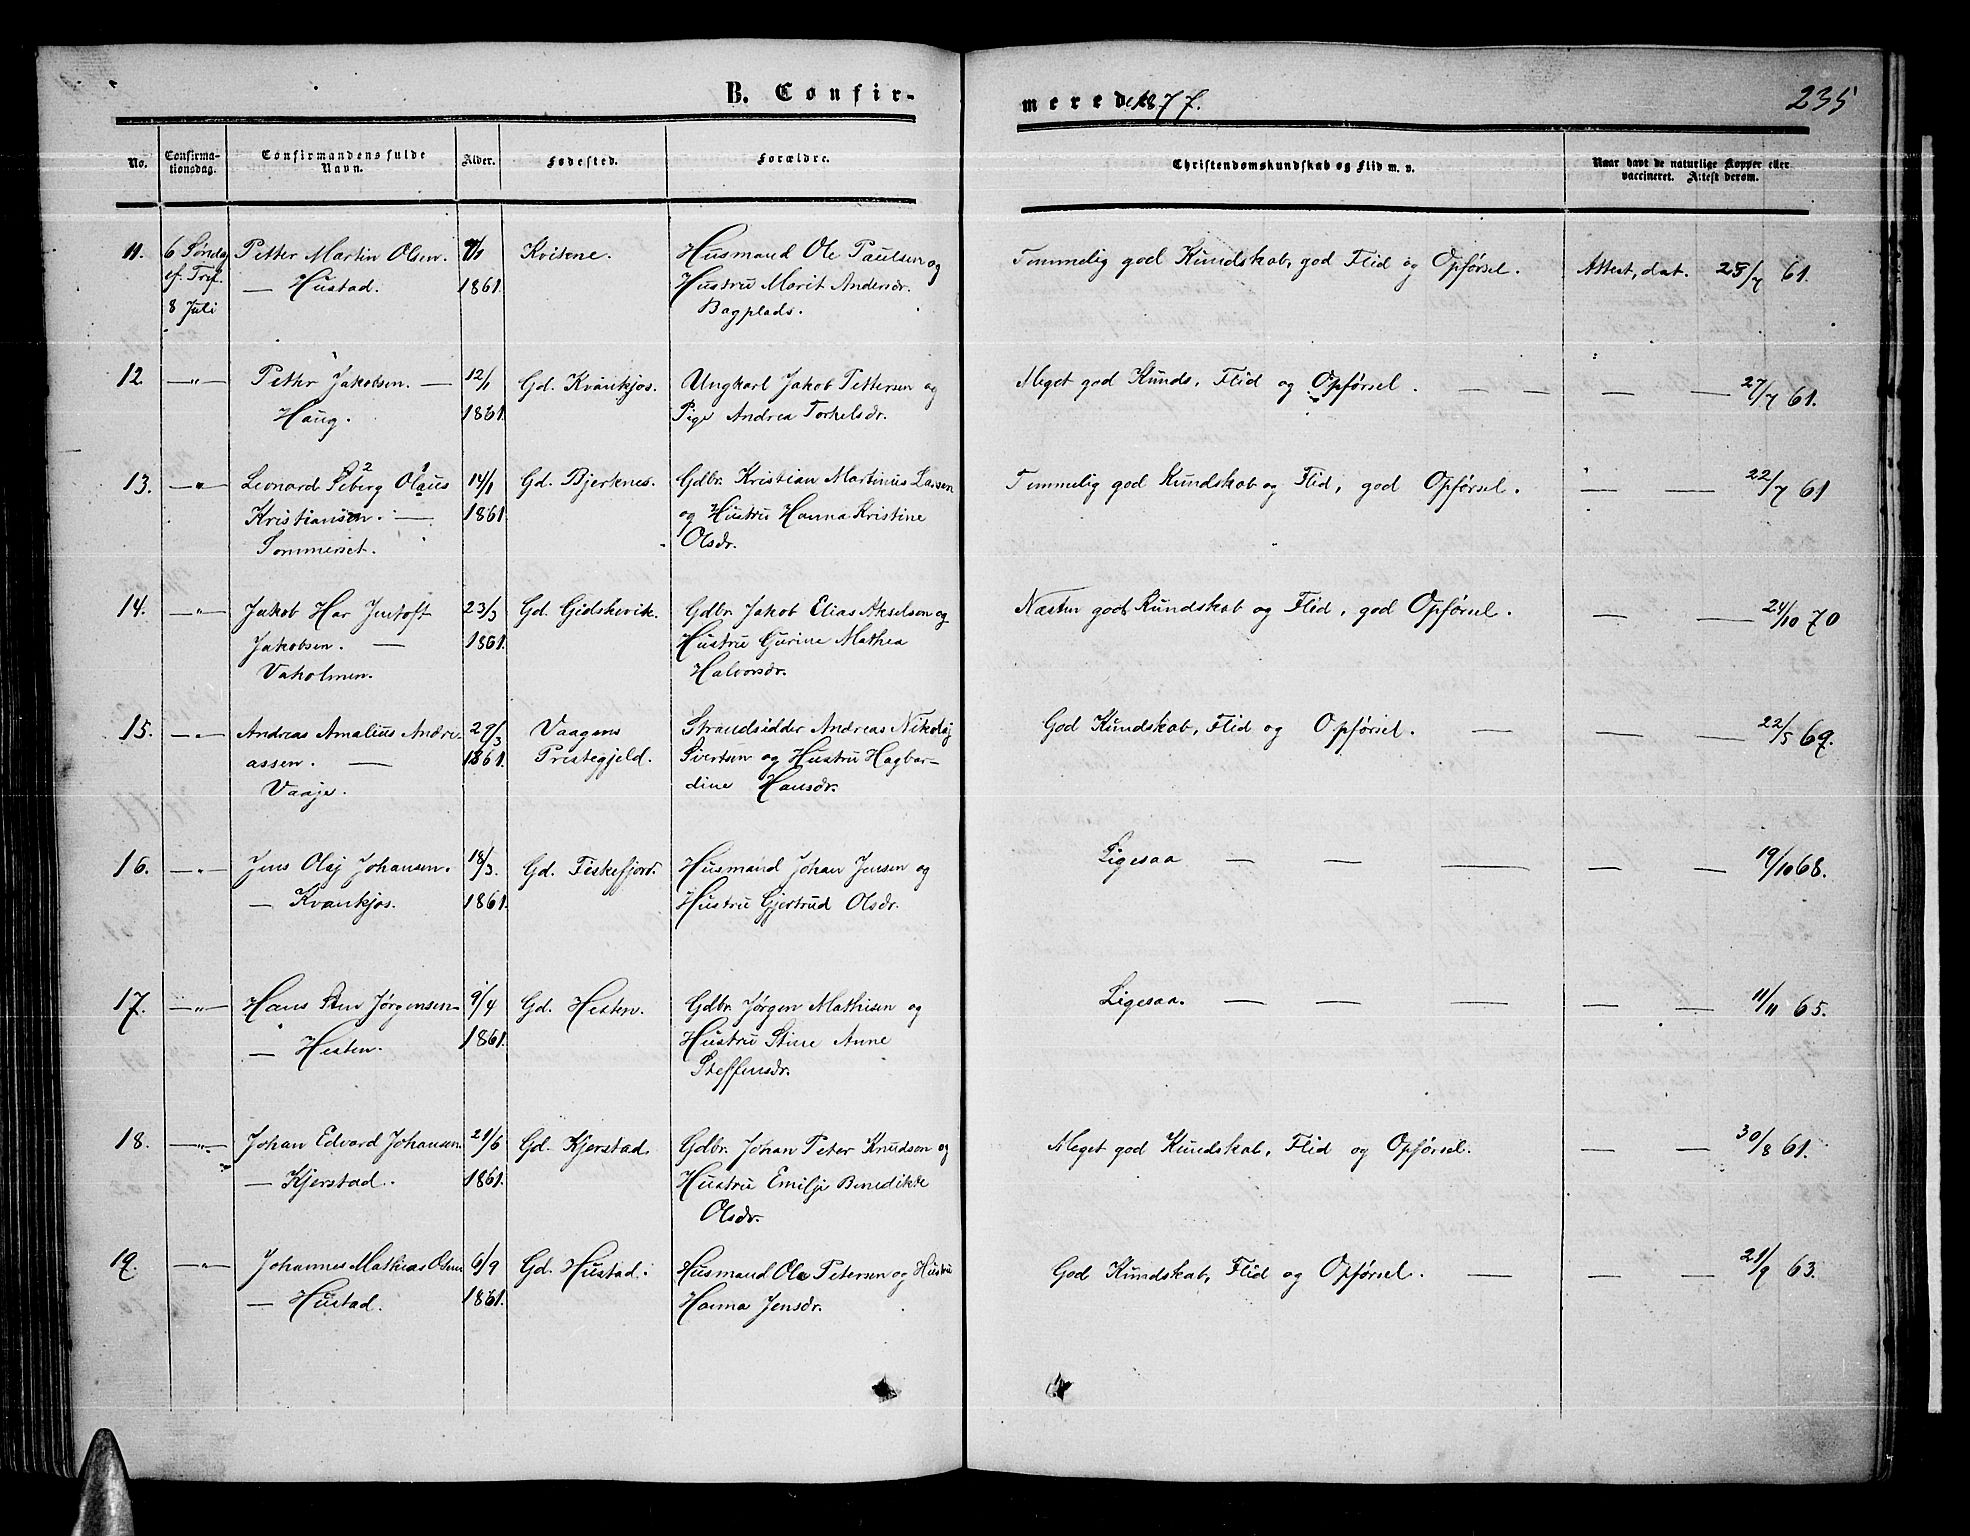 B. Confir-
merede 1877.
235
No.
Confirma-
tionsdag.
Confirmandens fulde
Navn.
Alder.
Fødested.
Forældre.
Christendomskundskab og Flid m. v.
Naar havt de naturlige Kopper eller
vaccineret. Attest derom.
11. 6 Søndag Petter Martin Olsen. 9/1 Kvitene. Husmand Ole Paulsen og Temmelig god Kundskab, god Flid og Opførsel. Attest, dat. 25/7 61.
ef. Tref. — Hustad. 1861. Hustru Marit Andersdr.
8 Juli Bagplads.
12 —"— Petter Jakobsen. — 12/1 Gd. Kvankjos. Ungkarl Jakob Pettersen og Meget god Kunds, Flid og Opførsel. — — — — 27/7 61.
Haug. 1861. Pige Andrea Torkelsdr.
13. —"— Leonard Seberg 2 Olaus 1 14/1 Gd. Bjerknes. Gdbr. Kristian Martinus Larsen Temmelig god Kundskab og Flid, god Opførsel. — — 22/7 61
Kristiansen. — 1861 og Hustru Hanna Kristine
Sommerset. Olsdr.
14. —"— Jakob Har Jentoft 23/3 Gd. Gidskevik. Gdbr. Jakob Elias Akselsen og Næsten god Kundskab og Flid, god Opførsel. — — 24/10 70
Jakobsen. — 1861. Hustru Gurine Mathea
Vaholmen. Halvorsdr.
15. —"— Andreas Amalius Andre- 29/3 Vaagens Strandsidder Andreas Nikolaj God Kundskab, Flid og Opførsel. — — — 22/5 69.
assen. — 1861. Præstegjeld. Sivertsen og Hustru Hagbar-
Vaaje. dine Hansdr.
16. —"— Jens Olaj Johansen. 18/3. Gd. Fiskefjord. Husmand Johan Jensen og Ligesaa — — — — — 19/10 68.
— Kvankjos. 1861. Hustru Gjertrud Olsdr.
17. —"— Hans Jørgensen— 9/4 Gd. Hesten. Gdbr. Jørgen Mathisen og Ligesaa. — — — — — 11/11 65.
— Hesten. 1861. Hustru Stine Anne
Steffensdr.
18. —"— Johan Edvard Johansen. 21/6 Gd. Kjerstad. Gdbr. Johan Peter Knudsen og Meget god Kundskab, Flid og Opførsel. — — 30/8 61.
— Kjerstad. 1861. Hustru Emilje Benedikte
Olsdr.
19. —"— Johannes Mathias Olsen 6/9 Gd. Hustad. Husmand Ole Petersen og Hustru God Kundskab, Flid og Opførsel. — — — 21/9 63.
— Hustad. 1861. Hanna Jensdr.